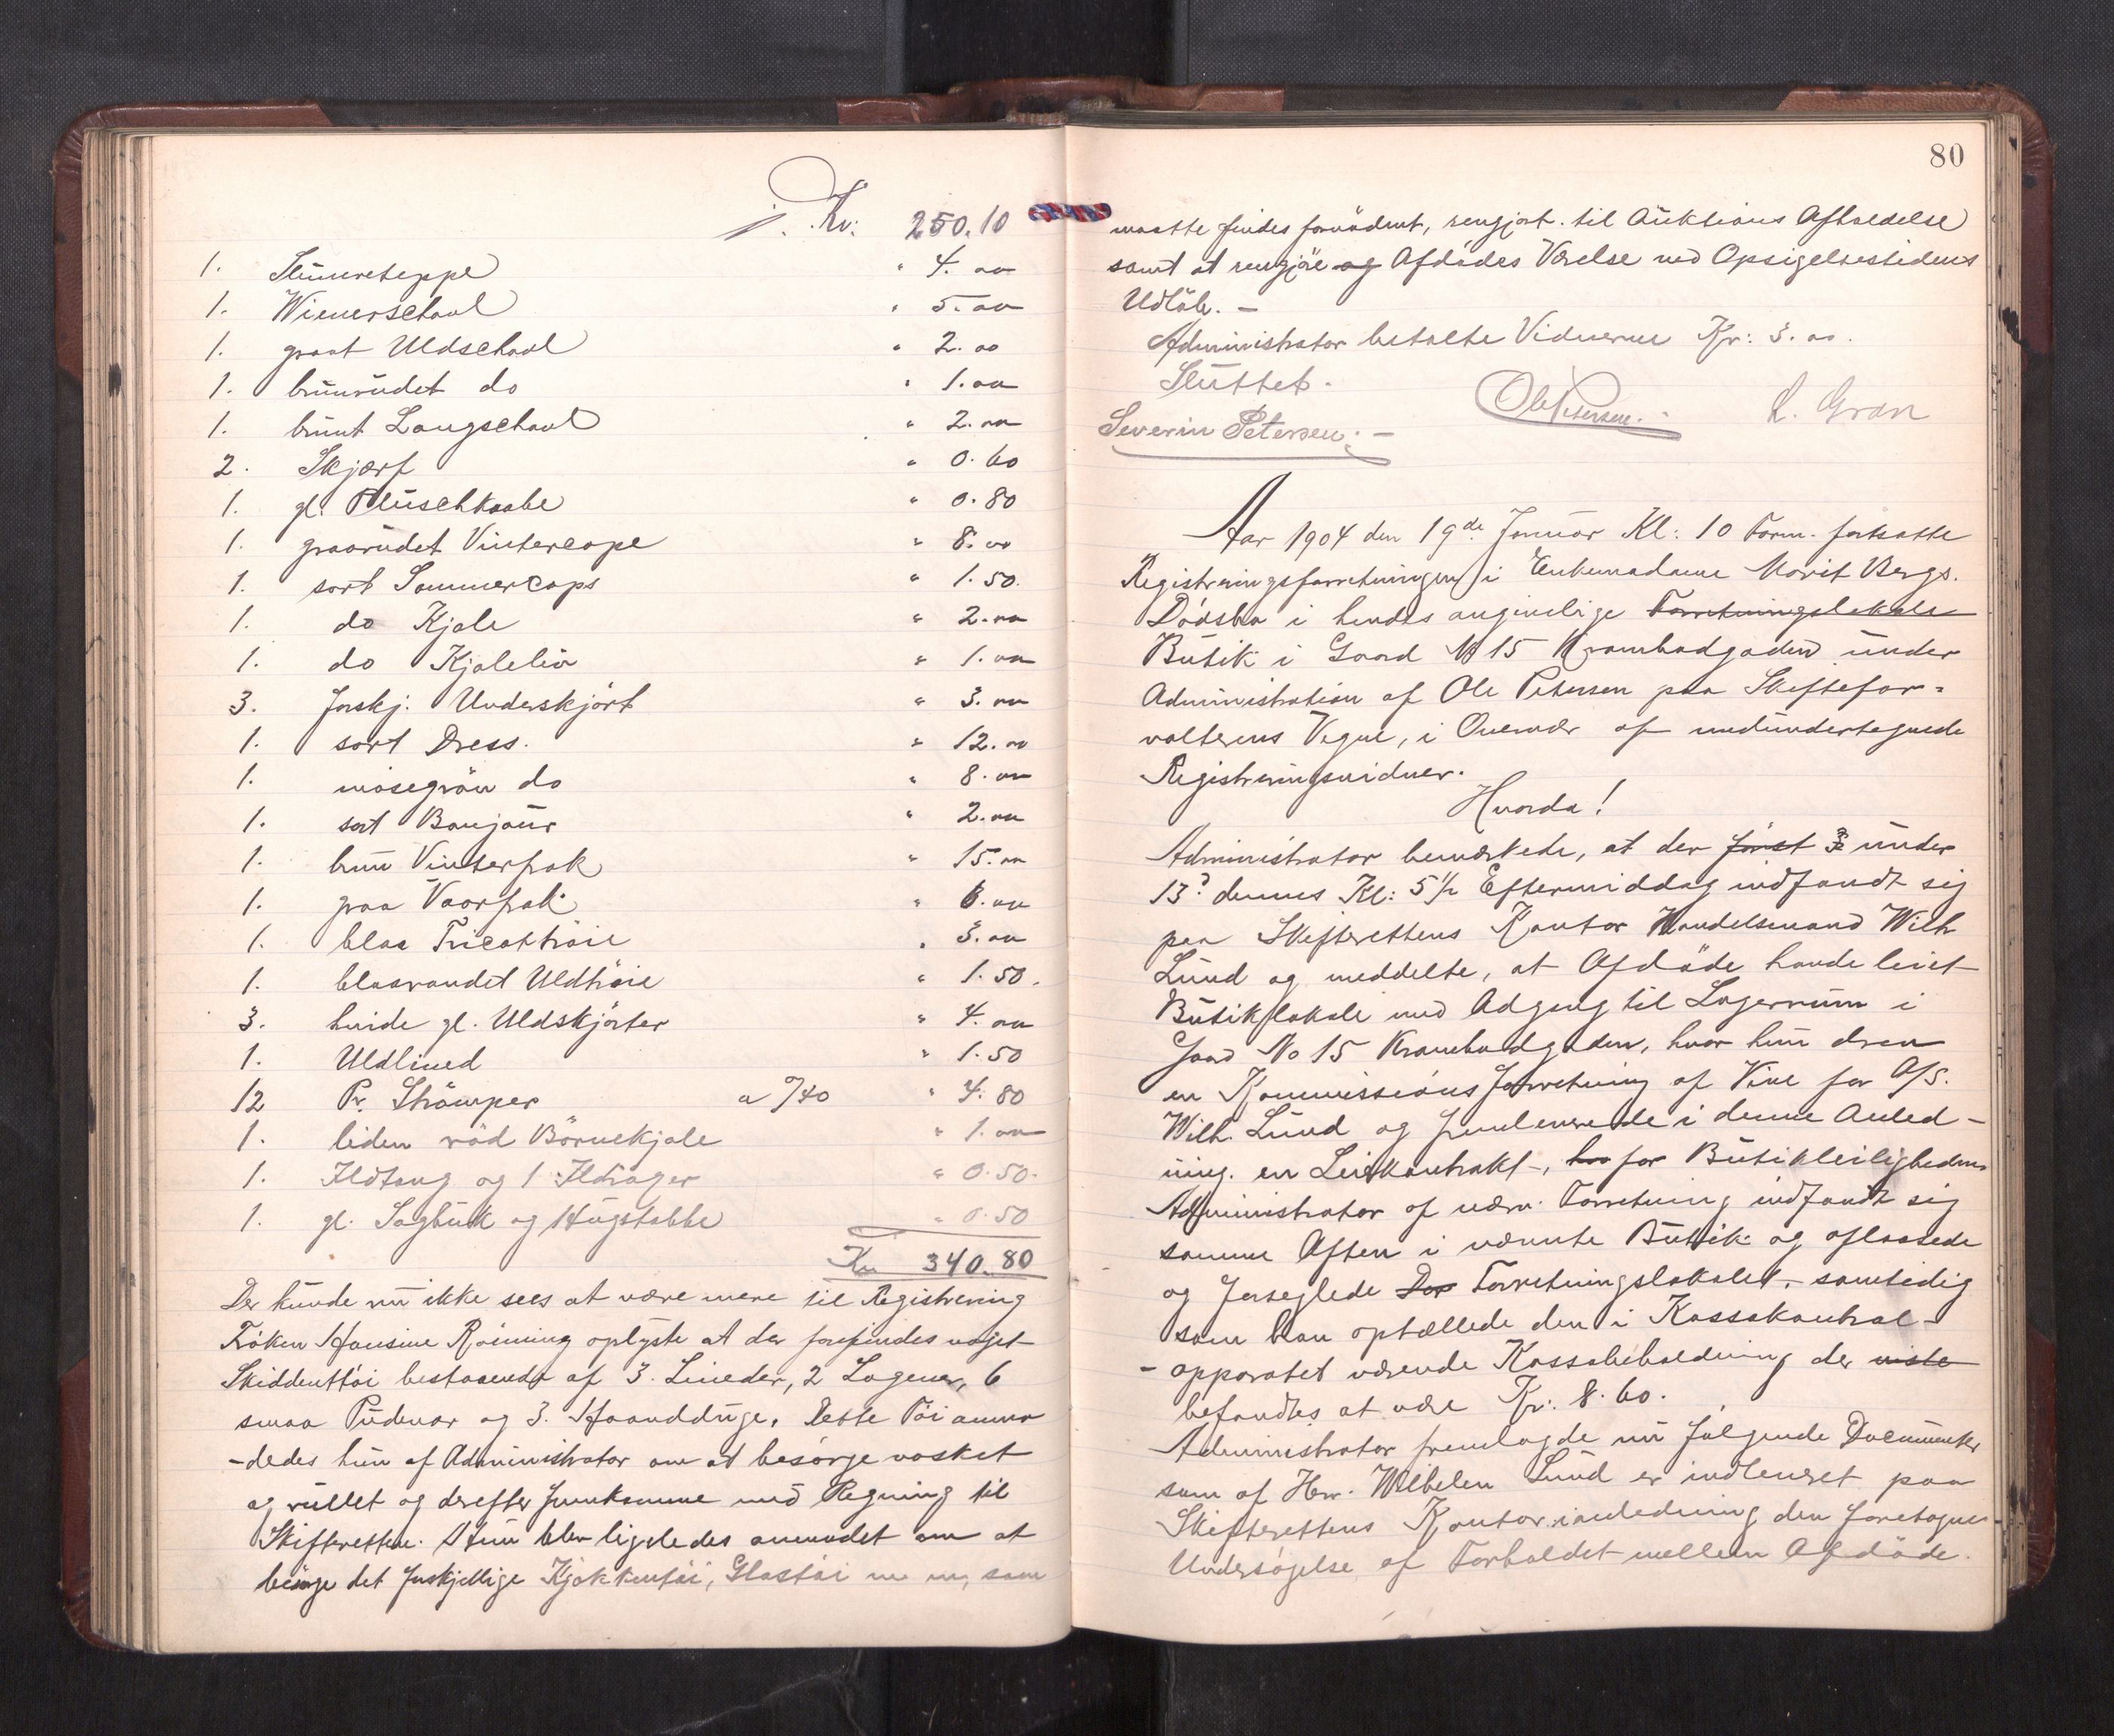 Kr. 250.10
1. Slumreteppe " 4.00
1. Wienerschavl " 5.00
1. graat Uldschavl " 2.00
1. brunrudet do " 1.00
1. brunt Langschavl " 2.00
2. Skjærf " 0.60
1. gl. Pluschkaabe " 0.80
1. graarudet Vintercape " 8.00
1. sort Sommercaps " 1.50.
1. do Kjole " 2.00
1. do Kjoleliv " 1.00
3. forskj. Underskjört " 3.00
1. sort Dress. " 12.00
1. mosegrön do " 8.00
1. sort Bonjour " 2.00
1. brun Vinterfrak " 15.00
1. graa Vaarfrak " 6.00
1. blaa Tricottröie " 3.00
1. blaarandet Uldtröie " 1.50.
3. hvide gl. Uldskjorter " 4.00
1. Uldlined " 1.50
12 Pr. Strömper a %40 " 4.80
1. liden röd Börnekjole " 1.00
1. Ildtang og 1 Ildrager " 0.50.
1. gl. Sagbuk og Hugstabbe " 0.50
Kr 340.80
Der kunde nu ikke sees at være mere til Registrering
Fröken Hansine Röining oplyste at der forefindes noget
Skiddentöi bestaaende af 3. Lineder, 2 Lagener, 6
smaa Pudevar og 3. Haandduge. Dette Töi anmo
-dedes hun af Administrator om at besörge vasket
og rullet og derefter fremkomme med Regning til
Skifteretten. Hun blev ligeledes anmodet om at
besörge det forskjellige Kjökkentöi, Glastöi m m, som
80
maatte findes fornödent, rengjort til Auktions Afholdelse
samt at rengjöre og Afdödes Værelse ved Opsigelsestidens
Udlöb. -
Administrator betalte Vidnerne Kr: 3.00.
Sluttet.
Severin Petersen. - Ole Petersen. L. Gran
Aar 1904 den 19de Januar Kl: 10 Form. fortsatte
Registreringsforretningen i Enkemadame Marit Bergs.
Dödsbo i hendes angivelige Forretningslokale
Butik i Gaard No 15 Krambodgaden under
Administration af Ole Petersen paa Skiftefor-
valterens Vegne, i Overvær af medundertegnede
Registreringsvidner.
Hvorda!
Administrator bemærkede, at der först under
13de dennes Kl: 5½ Eftermiddag indfandt sig
paa Skifterettens Kontor Handelsmand Wilh
Lund og meddelte, at Afdöde havde leiet
Butiklokale med Adgang til Lagerrum i
Gaard No 15 Krambodgaden, hvor hun drev
en Kommissions forretning af Vine for A/S.
Wilh. Lund og fremleverede i denne Anled-
ning. en Leiekontrakt, for Butikleiligheden.
Administrator af nærv. Forretning indfandt sig
samme Aften i nævnte Butik og aflaasede
og forseglede Dör Forretningslokalet, samtidig
som han optællede den i Kassakontrol-
-apparatet værende Kassabeholdning der viste
befandtes at være Kr: 8.60.
Administrator fremlagde nu fölgende Documenter
som af Herr. Wilhelm Lund er indleveret paa
Skifterettens Kontor i anledning den foretagne
Undersögelse af Forholdet mellem Afdöde.